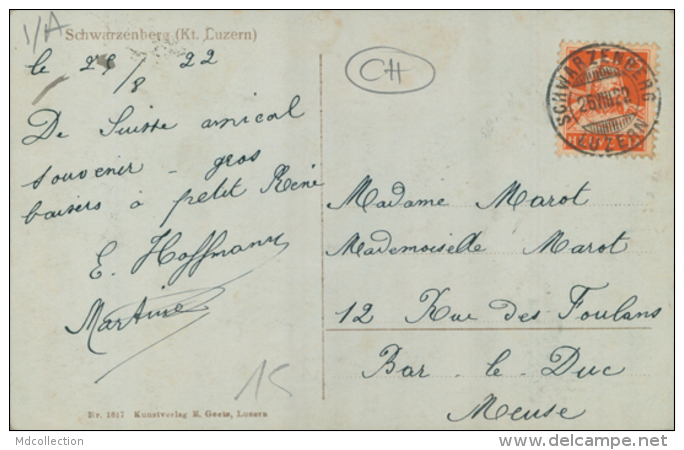 1/A
Schwarzenberg (Kt. Luzern)
le 25/8 22
CH
SCHWARZENBERG
LUZERN
De Suisse amical
souvenir - gros
baisers à petit René
E. Hoffmann
Martine
Madame Marot
Mademoiselle Marot
12 Rue des Foulans
Bar - le - Duc
Meuse
15
Nr. 1617 Kunstverlag E. Goetz, Luzern
Mdcollection
www.delcampe.net